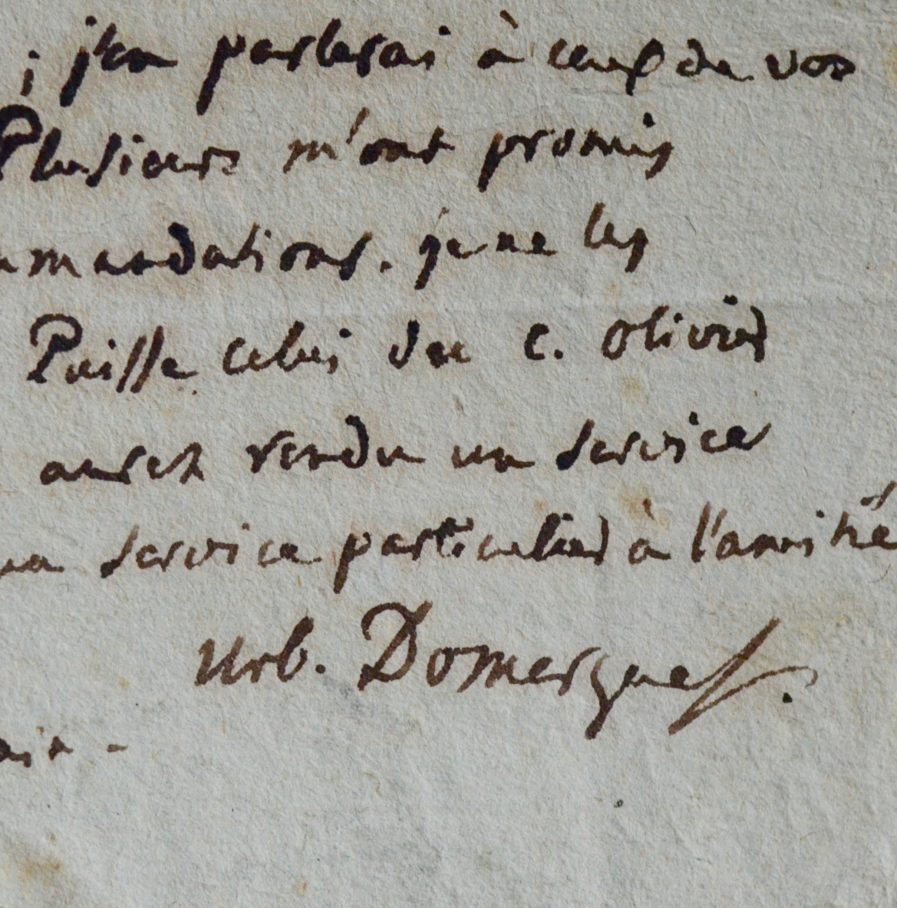 ; j'en parlerai à ceux de vos
Plusieurs m'ont promis
mmandations. je ne les
Puisse celui du c. olivier
aurez rendu un service
un service particulier à l'amitié
Urb. Domergue